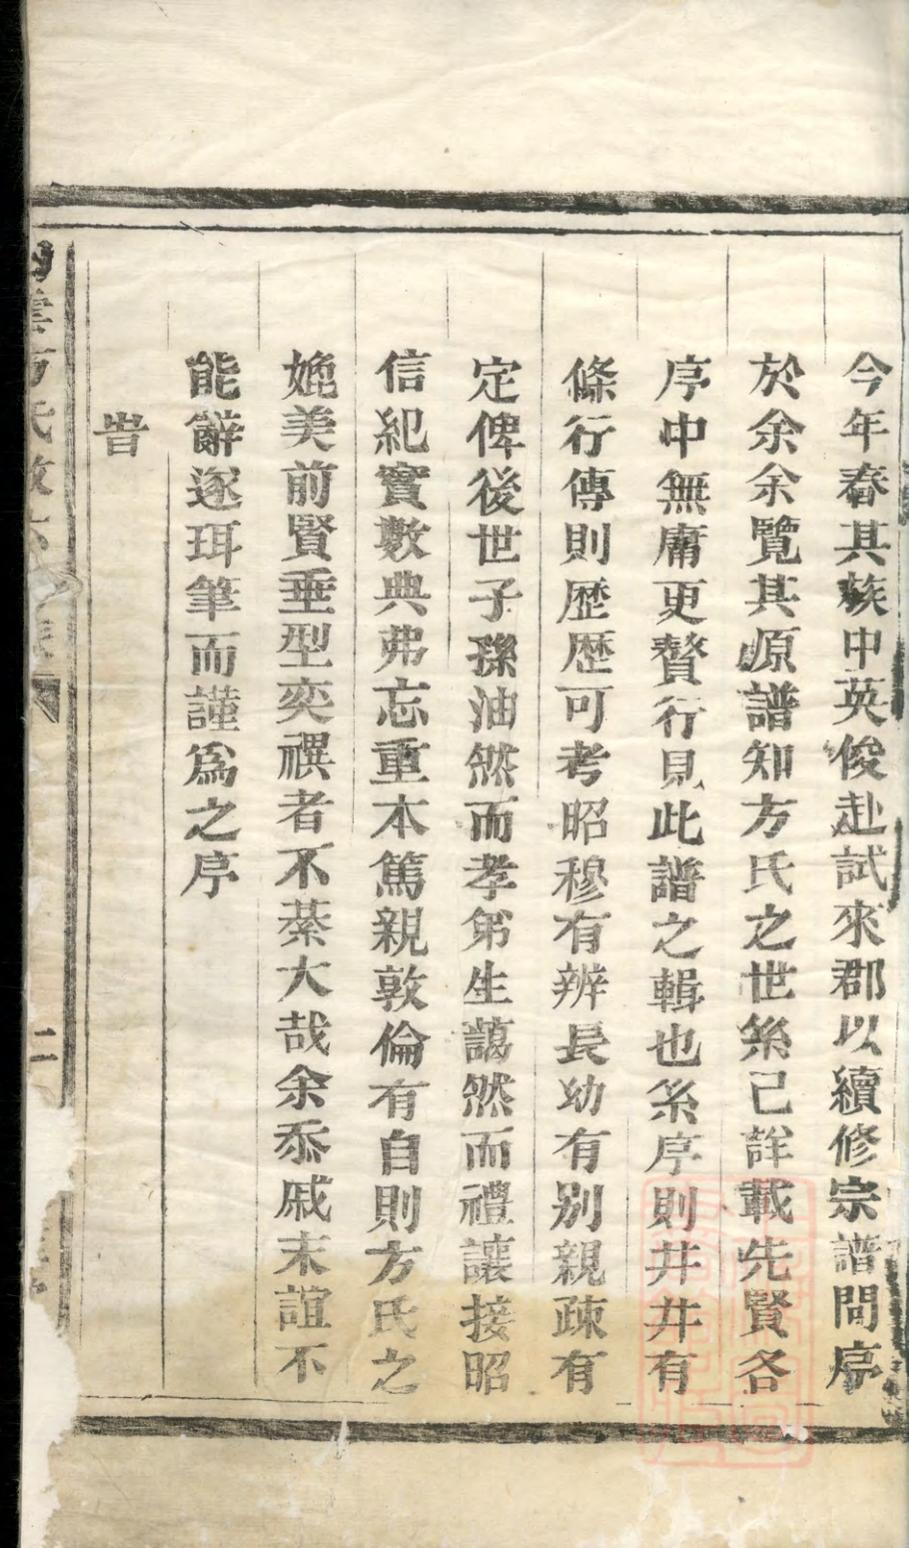 今年春其族中英俊赴試來郡以續修宗譜問序
於余余覽其原譜知方氏之世系己詳載先賢各
序中無庸更贅行見此譜之輯也系序則井井有
條行傳則歷歷可考昭穆有辨長幼有别親疎有
定俾後世子孫油然而孝弟生藹然而禮讓接昭
信紀實數典弗忘重本篤親敦倫有自則方氏之
媲美前賢垂型奕禩者不綦大哉余忝戚末誼不
能辭遂珥筆而謹爲之序
旹
方氏
二